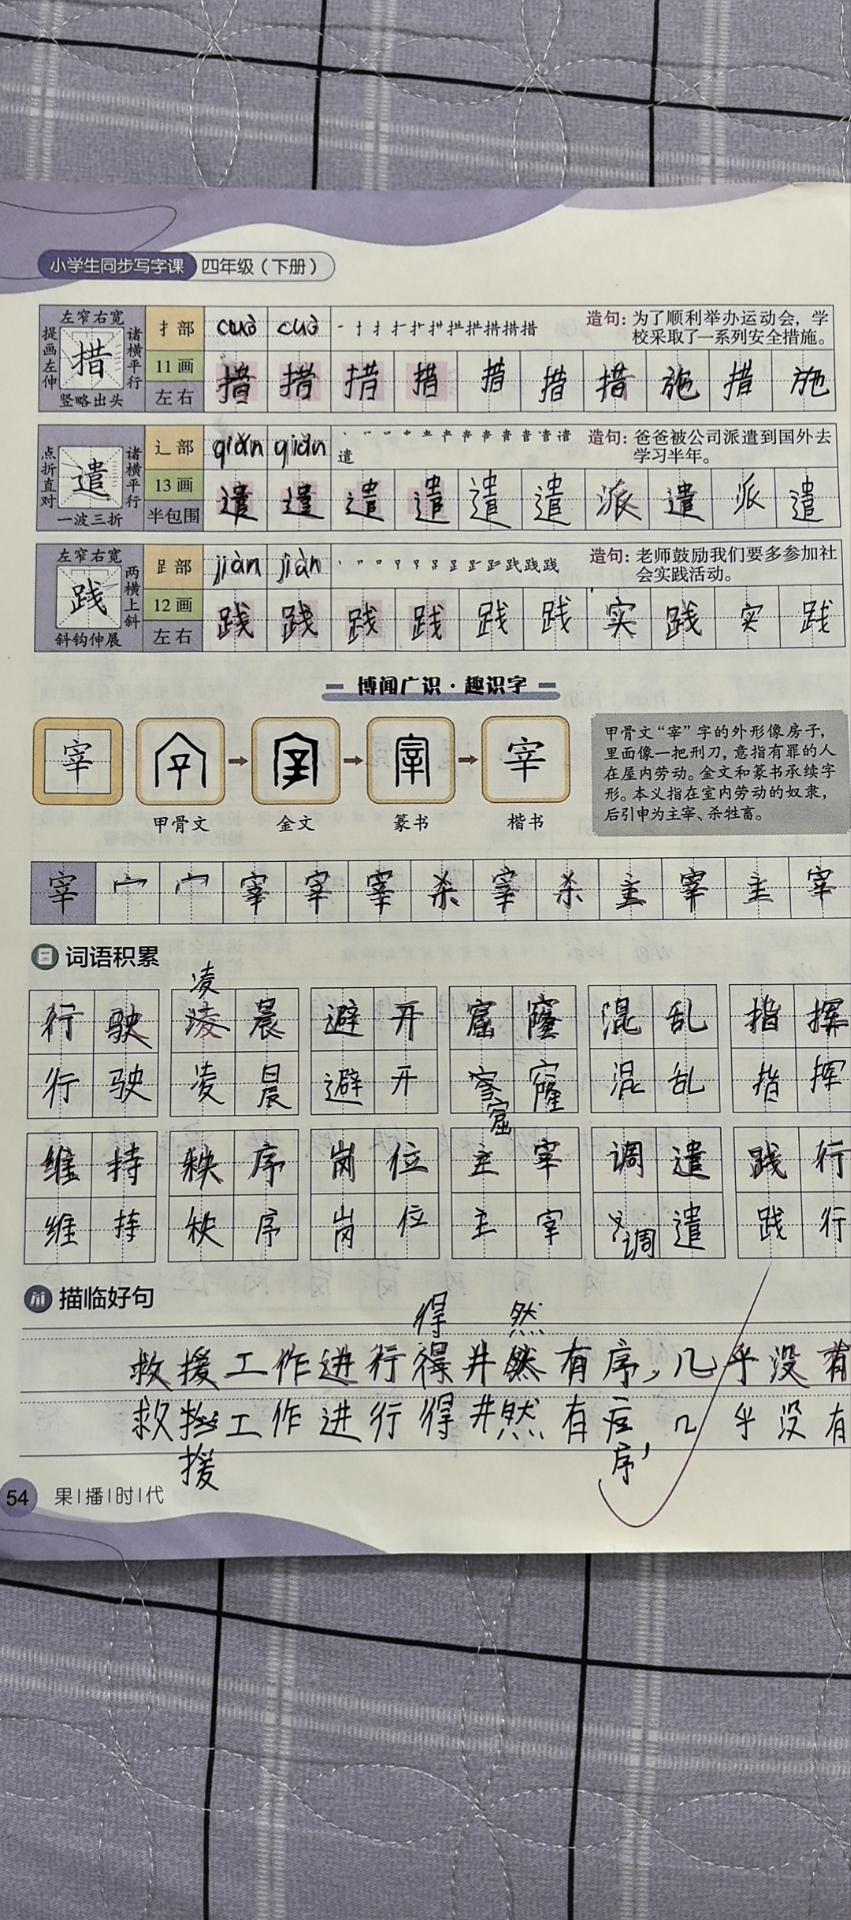 小学生同步写字课 四年级（下册）
左窄右宽
提画左伸 措 诸横平行
竖略出头
扌部 cuò cuò
造句：为了顺利举办运动会，学
校采取了一系列安全措施。
11画
左右
措 措 措 措 措 措 措 施 措 施
点折直对 遣 诸横平行
一波三折
辶部 qiǎn qiǎn
造句：爸爸被公司派遣到国外去
学习半年。
13画
半包围
遣 遣 遣 遣 遣 遣 派 遣 派 遣
左窄右宽
践 两横上斜
斜钩伸展
⻊部 jiàn jiàn
造句：老师鼓励我们要多参加社
会实践活动。
12画
左右
践 践 践 践 践 践 实 践 实 践
博闻广识·趣识字
宰 宰
甲骨文 金文 篆书 楷书
甲骨文“宰”字的外形像房子，
里面像一把刑刀，意指有罪的人
在屋内劳动。金文和篆书承续字
形。本义指在室内劳动的奴隶，
后引申为主宰、杀牲畜。
宰 宀 宀 宰 宰 宰 杀 宰 杀 主 宰 主 宰
词语积累
凌
行驶 凌晨 避开 窟窿 混乱 指挥
行驶 凌晨 避开 窿 混乱 指挥
窟
维持 秩序 岗位 主宰 调遣 践行
维持 秩序 岗位 主宰 调遣 践行
描临好句
得 然
救援工作进行得井然有序，几乎没有
救 工作进行得井然有 几乎没有
援 序，
54 果|播|时|代